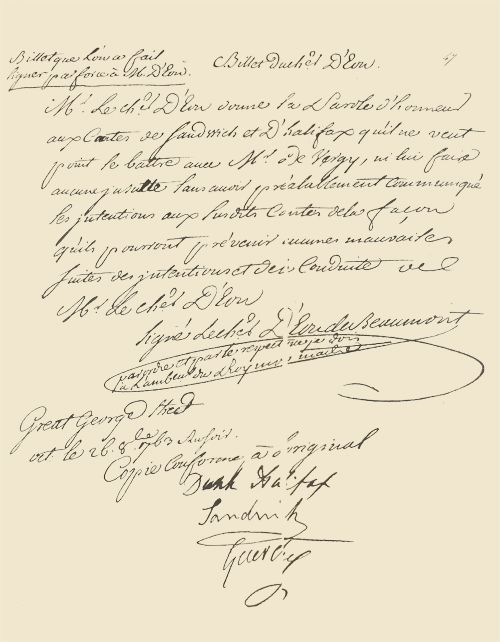 Billet que L'on a fait
signer par force à M. D'Eon.
Billet du chr. D'Eon.
47
Mr. Le chr. D'Eon donne sa Parole d'honneur
aux Comtes de Sandwich et D'halifax qu'il ne veut
point se battre avec Mr. de Vergy, ni lui faire
aucune insulte sans avoir préalablement communiqué
ses intentions aux susdits Comtes de la façon
qu'ils pourront prévenir aucunes mauvaises
suites des intentions et de la Conduite de
Mr. Le chr. D'Eon
signé Le chr. D'Eon de Beaumont
par ordre et par le respect que je dois
à L'ambassadeur du Roy mon maitre
Great George Street
oct. le 26. 8bre 1763 au soir.
Copie Conforme à L'original
Dunk Halifax
Sandwich
Guerchy